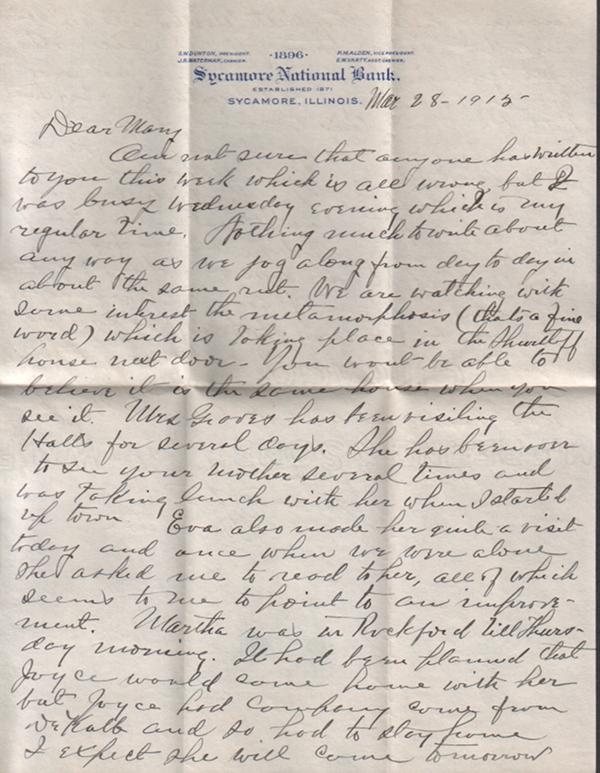 S.W. DUNTON, PRESIDENT. ·1896· P.M. ALDEN, VICE PRESIDENT.
J.R. WATERMAN, CASHIER. E.W. VARTY, ASST. CASHIER.
Sycamore National Bank.
ESTABLISHED 1871
SYCAMORE, ILLINOIS. Mar 28 - 1915
Dear Mary
Am not sure that anyone has written
to you this week which is all wrong but I
was busy Wednesday evening which is my
regular time. Nothing much to write about
any way as we jog along from day to day in
about the same rut. We are watching with
some interest the metamorphosis (thats a fine
word) which is taking place in the Shurtleff
house next door - You wont be able to
believe it is the same house when you
see it. Mrs Groves has been visiting the
Halls for several days. She has been over
to see your mother several times and
was taking lunch with her when I started
up town Eva also made her quite a visit
today and once when we were alone
she asked me to read to her, all of which
seems to me to point to an improve-
ment. Martha was in Rockford till Thurs-
day morning. It had been planned that
Joyce would come home with her
but Joyce had company come from
DeKalb and so had to stay home
I expect she will come tomorrow